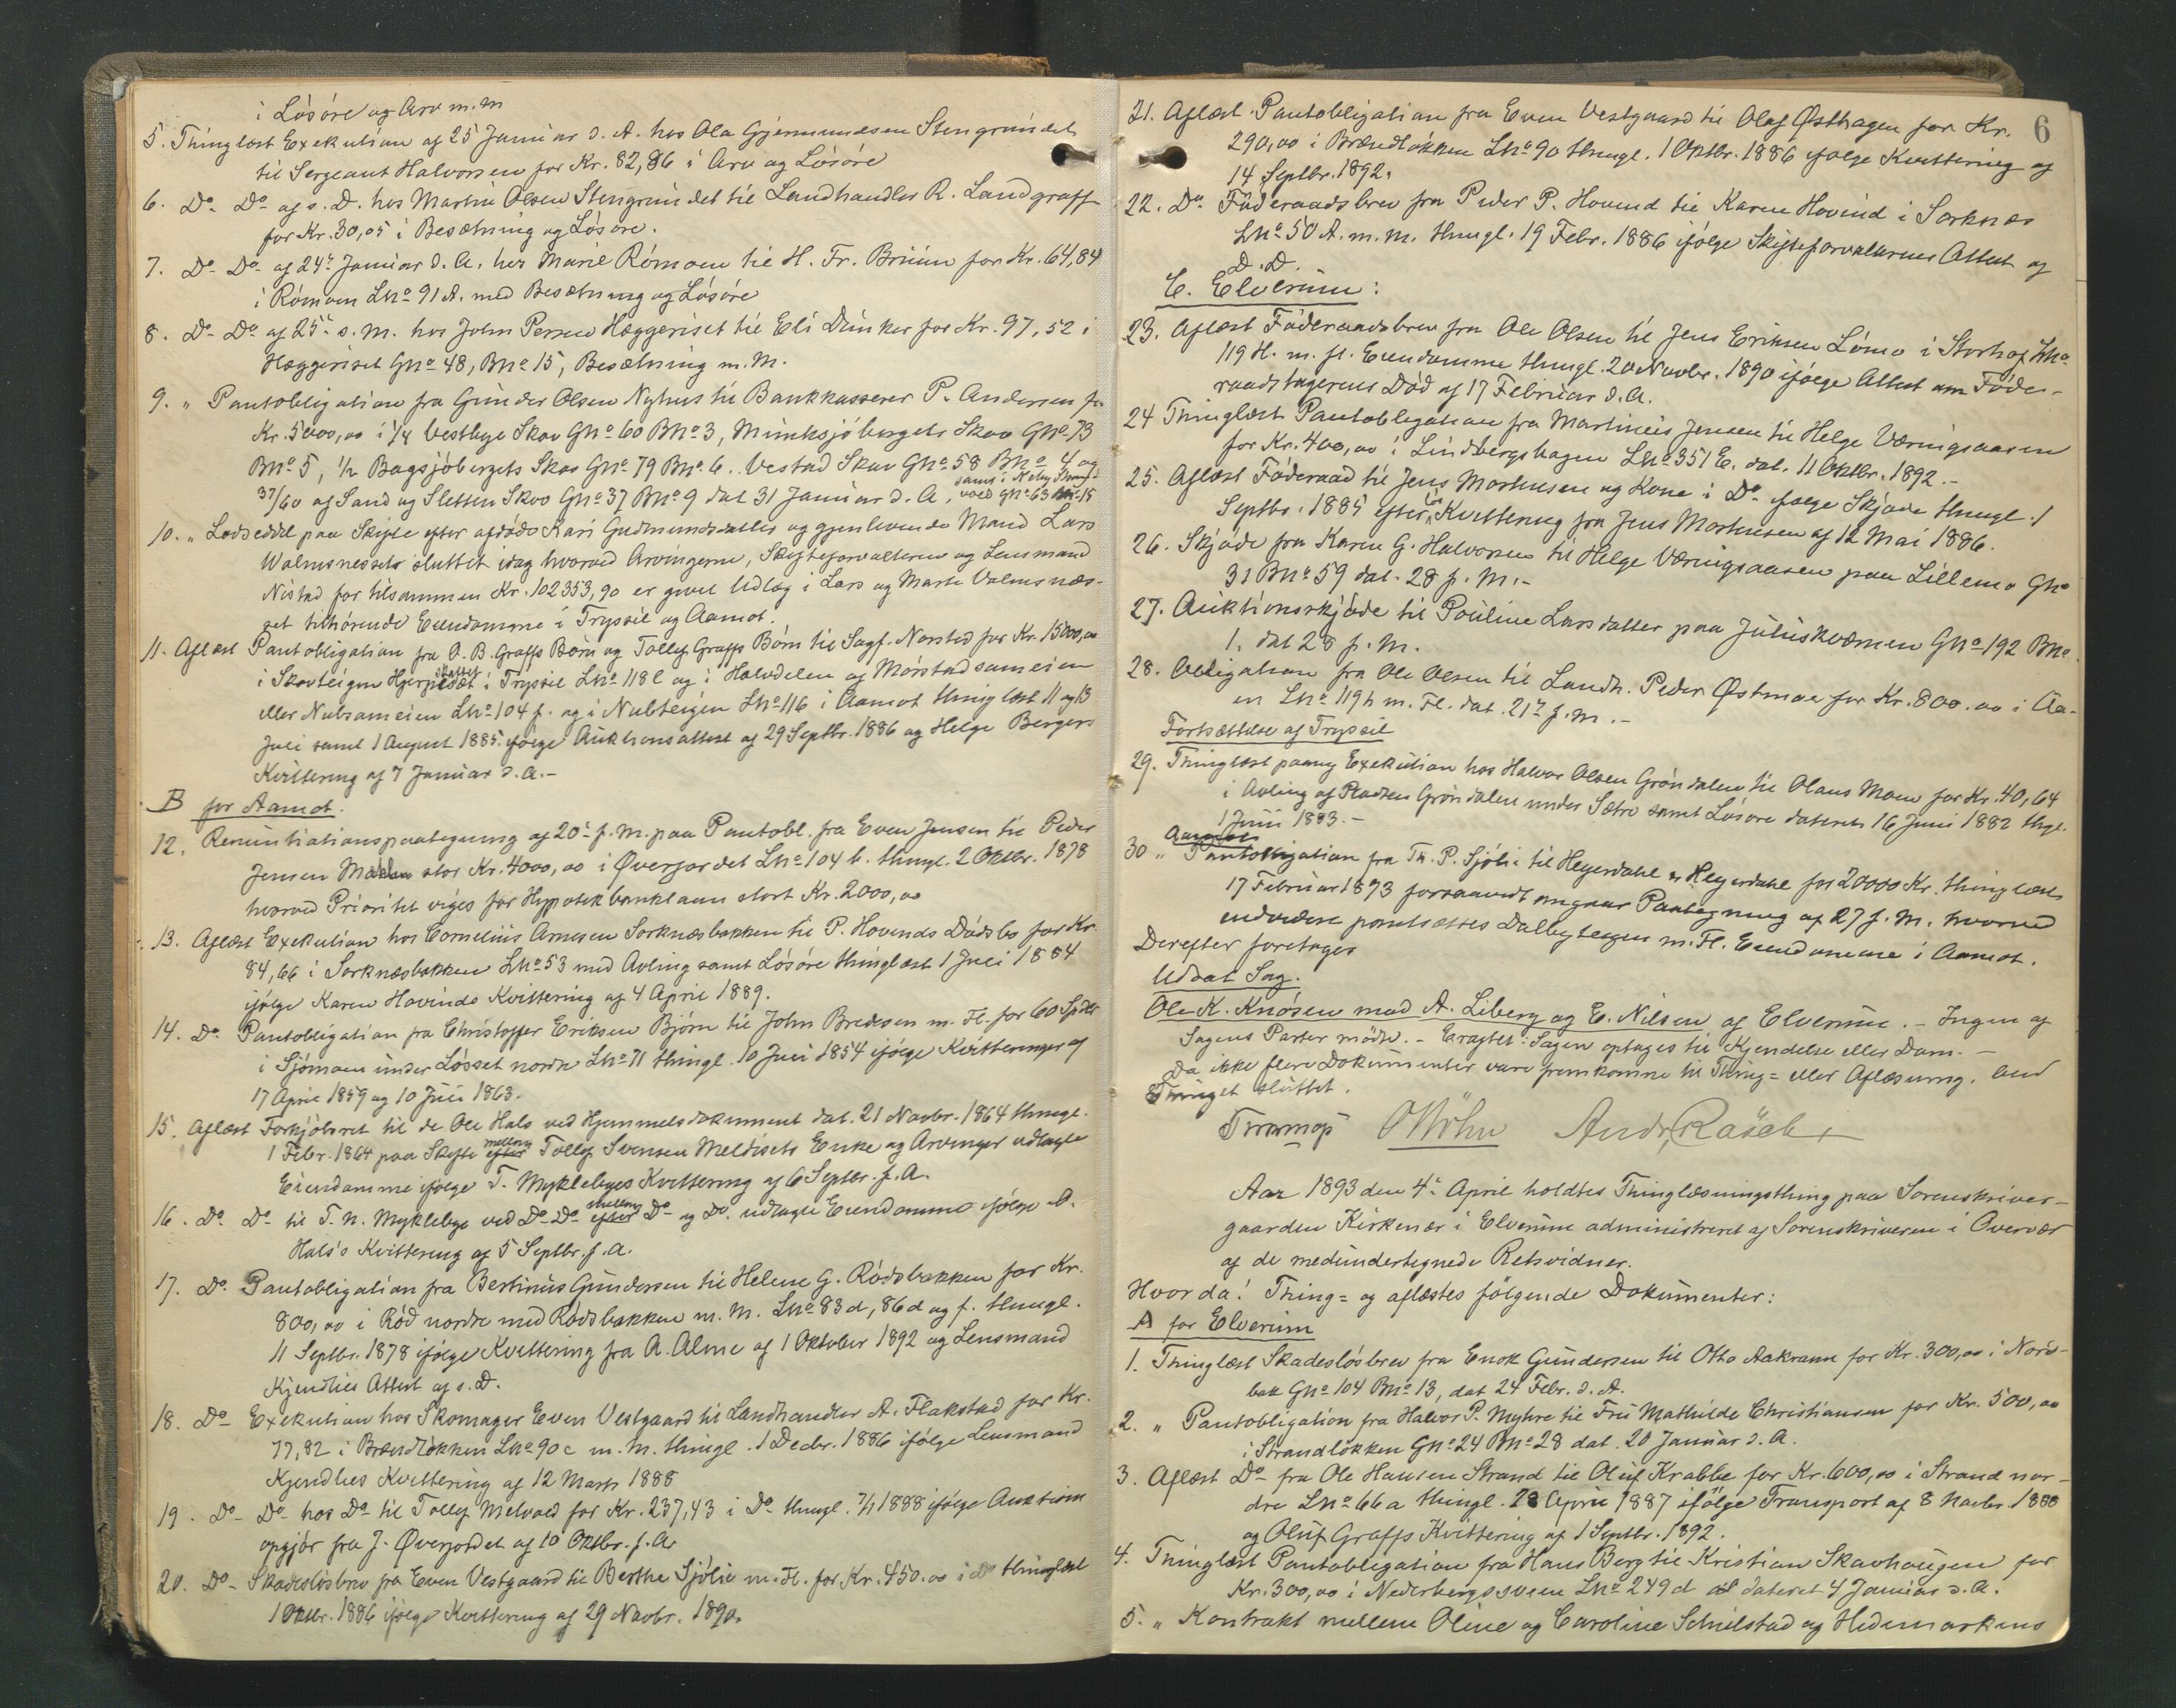 i Lösöre og Arv m.m
5. Thinglæst Exekution af 25 Januar d. A. hos Ola Gjermundsen Stengrundet
til Sergeant Halvorsen for Kr. 82,86 i Arv og Lösöre
6. Do- Do- af s. D. hos Martin Olsen Stengrundet til Landhandler R. Landgraff
for Kr. 30,05 i Besætning og Lösöre.
7. Do- Do- af 24de Januar d. A. hos Marie Römoen til H. Fr. Bruun for Kr. 64,84
i Römoen Lno 91 A. med Besætning og Lösöre
8. Do- Do- af 25de s. M. hos John Persen Hæggeriset til Eli Dunker for Kr. 97,52 i
Hæggeriset Gno 48, Bno 15, Besætning m. M.
9. „ Pantobligation fra Gunder Olsen Nyhus til Bankkasserer P. Andersen for
Kr. 5000,00 i 1/4 Vestbye Skov Gno 60 Bno 3, Munksjöbergets Skov Gno 73
Bno 5, 1/2 Bagsjöbergets Skov Gno 79 Bno 6. Vestad Skov Gno 58 Bno 4 og
37/60 af Sand og Sletten Skov Gno 37 Bno 9 dat 31 Januar d. A. samt i Neby
vold Gno 63 15
10. „ Lodseddel paa Skifte efter afdöde Kari Gudmundsdatter og gjenlevende Mand Lars
Walmsnessets sluttet idag hvorved Arvingerne, Skifteforvalteren og Lensmand
Nistad for tilsammen Kr. 102353,90 er givet Udlæg i Lars og Marte Valmsnæs-
set tilhörende Eiendomme i Trysil og Aamot.
11. Aflæst Pantobligation fra O. B. Graffs Börn og Tollef Graffs Börn til Sagf. Norstad for Kr. 15000,00
i Skovteigen i Trysil Lno 118 l og i Halvdelen af Mörstadsameien
eller Nubsameien Lno 104 f. og i Nubteigen Lno 116 i Aamot thinglæst 11 og 13
Juli samt 1 August 1885 ifölge Auktionsattest af 29 Septbr. 1886 og Helge Bergers
Kvittering af 7 Januar d. A.-
B for Aamot.
12. Renuntiationspaategning af 20de f. M. paa Pantobl. fra Even Jensen til Peder
Jensen stor Kr. 4000,00 i Øverjordet Lno 104 b. thingl. 2 Oktbr. 1878
hvorved Prioritet viges for Hypotekbanklaan stort Kr. 2000,00
13. Aflæst Exekution hos Cornelius Arnesen Sorknæsbakken til P. Hovends Dödsbo for Kr.
84,66 i Sorknæsbakken Lno 53 med Avling samt Lösöre thinglæst 1 Juli 1884
ifölge Karen Hovinds Kvittering af 4 April 1889.
14. Do. Pantobligation fra Christoffer Eriksen Björn til John Bredesen m. Fl. for 60 Spdlr
i Sjömoen under Lösset nordre Lno 71 thingl. 10 Juli 1854 ifölge Kvitteringer af
17 April 1859 og 10 Juli 1863.
15. Aflæst Forkjöbsret til de Ole Hals ved Hjemmelsdokument dat. 21 Novbr. 1864 thingl.
1 Febr. 1864 paa Skifte mellem Tollef Svensen Meldisets Enke og Arvinger udlagte
Eiendomme ifölge T. Myklebyes Kvittering af 6 Septbr. f. A.
16. Do. Do- til T. N. Myklebye ved Do- Do- mellem Do- og Do. udlagte Eiendomme ifölge O.
Hals's Kvittering af 5 Septbr. f. A.
17. Do. Pantobligation fra Bertinus Gundersen til Helene G. Rödsbakken for Kr.
800,00 i Röd nordre med Rödsbakken m. M. Lno 83 d, 86 d og f. thingl.
11 Septbr. 1878 ifölge Kvittering fra A. Alme af 1 Oktober 1892 og Lensmand
Kjendlies Attest af s. D.
18. Do- Exekution hos Skomager Even Vestgaard til Landhandler A. Flakstad for Kr.
77,82 i Brændlökken Lno 90 c m. m. thingl. 1 Decbr. 1886 ifölge Lensmand
Kjendlies Kvittering af 12 Marts 1888
19. Do- Do- hos Do. til Tollef Melvold for Kr. 237,43 i Do- thingl. 1888 ifölge Auktions
opgjör fra J. Øverjordet af 10 Oktbr. f. A.
20. Do- Skadeslösbrev fra Even Vestgaard til Berthe Sjölie m. Fl. for Kr. 450.00 i Do thinglæst
1 Oktbr. 1886 ifölge Kvittering af 29 Novbr. 1890.
6
21. Aflæst Pantobligation fra Even Vestgaard til Olaf Østhagen for Kr.
290,00 i Brændlökken Lno 90 thingl. 1 Oktbr. 1886 ifölge Kvittering af
14 Septbr. 1892.
22. Do. Föderaadsbrev fra Peder P. Hovend til Karen Hovind i Sorknæs
Lno 50 A. m. m. thingl. 19 Febr. 1886 ifölge Skifteforvalterens Attest af
D. D.
C. Elverum:
23. Aflæst Föderaadsbrev fra Ole Olsen til Jens Eriksen Lömo i Storhof Lno
119 H. m. fl. Eiendomme thingl. 20 Novbr. 1890 ifölge Attest om Föde-
raadstagerens Död af 17 Februar d. A.
24 Thinglæst Pantobligation fra Martinius Jensen til Helge Væringsaasen
for Kr. 400,00 i Lindbergshagen Lno 351 E. dat. 11 Oktbr. 1892.-
25. Aflæst Föderaad til Jens Mortensen og Kone i Do. ifölge Skjöde thingl. 1
Septbr. 1885 efter Kvittering fra Jens Mortensen af 12 Mai 1886.
26. Skjöde fra Karen G. Halvorsen til Helge Væringsaasen paa Lillemo Gno
31 Bno 59 dat. 28 f. M.-
27. Auktionsskjöde til Pouline Larsdatter paa Juliuskvæmen Gno 192 Bno
1. dat 28 f. M.
28. Obligation fra Ole Olsen til Landh. Peder Østmoe for Kr. 800.00 i Aa-
en Lno 119 h m. Fl. dat. 21de f. M.-
Fortsættelse af Trysil
29. Thinglæst paany Exekution hos Halvor Olsen Gröndalen til Olaus Moen for Kr. 40,64
i Avling af Pladsen Gröndalen under Sætre samt Lösöre dateret 16 Juni 1882 thgl.
1 Juni 1883.-
Aamot
30 „ Pantobligation fra Th. P. Sjölie til Heyerdahl & Heyerdahl for 20000 Kr. thinglæst
17 Februar 1893 forsaavidt angaar Paategning af 27 f. M. hvorved
endvidere pantsættes Dalbyteigen m. Fl. Eiendomme i Aamot.
Derefter foretages
Udsat Sag.
Ole K. Knösen mod A. Liberg og E. Nilsen af Elverum.- Ingen af
Sagens Parter mödte.- Eragtet: Sagen optages til Kjendelse eller Dom.-
Da ikke flere Dokumenter vare fremkomne til Thing= eller Aflæsning, blev
Thinget sluttet.
Andr. Rasch
Aar 1893 den 4de April holdtes Thinglæsningsthing paa Sorenskriver-
gaarden Kirkenær i Elverum administreret af Sorenskriveren i Overvær
af de medundertegnede Retsvidner.
Hvorda! Thing= og aflæstes fölgende Dokumenter:
A for Elverum
1. Thinglæst Skadeslösbrev fra Enok Gundersen til Otto Aakrann for Kr. 300,00 i Nord-
bak Gno 104 Bno 13, dat 24 Febr. d. A.
2. „ Pantobligation fra Halvor P. Myhre til Fru Mathilde Christiansen for Kr. 500,00
i Strandlökken Gno 24 Bno 28 dat. 20 Januar d. A.
3. Aflæst Do- fra Ole Hansen Strand til Oluf Krabbe for Kr. 600,00 i Strand nor-
dre Lno 66 a thingl. 28 April 1887 ifölge Transport af 8 Novbr. 1888
og Oluf Graffs Kvittering af 1 Septbr. 1892.
4. Thinglæst Pantobligation fra Hans Berg til Kristian Skavhaugen for
Kr. 300,00 i Nederbergssveen Lno 249 d dateret 4 Januar d. A.
5. „ Kontrakt mellem Oline og Caroline Schulstad og Hedemarkens